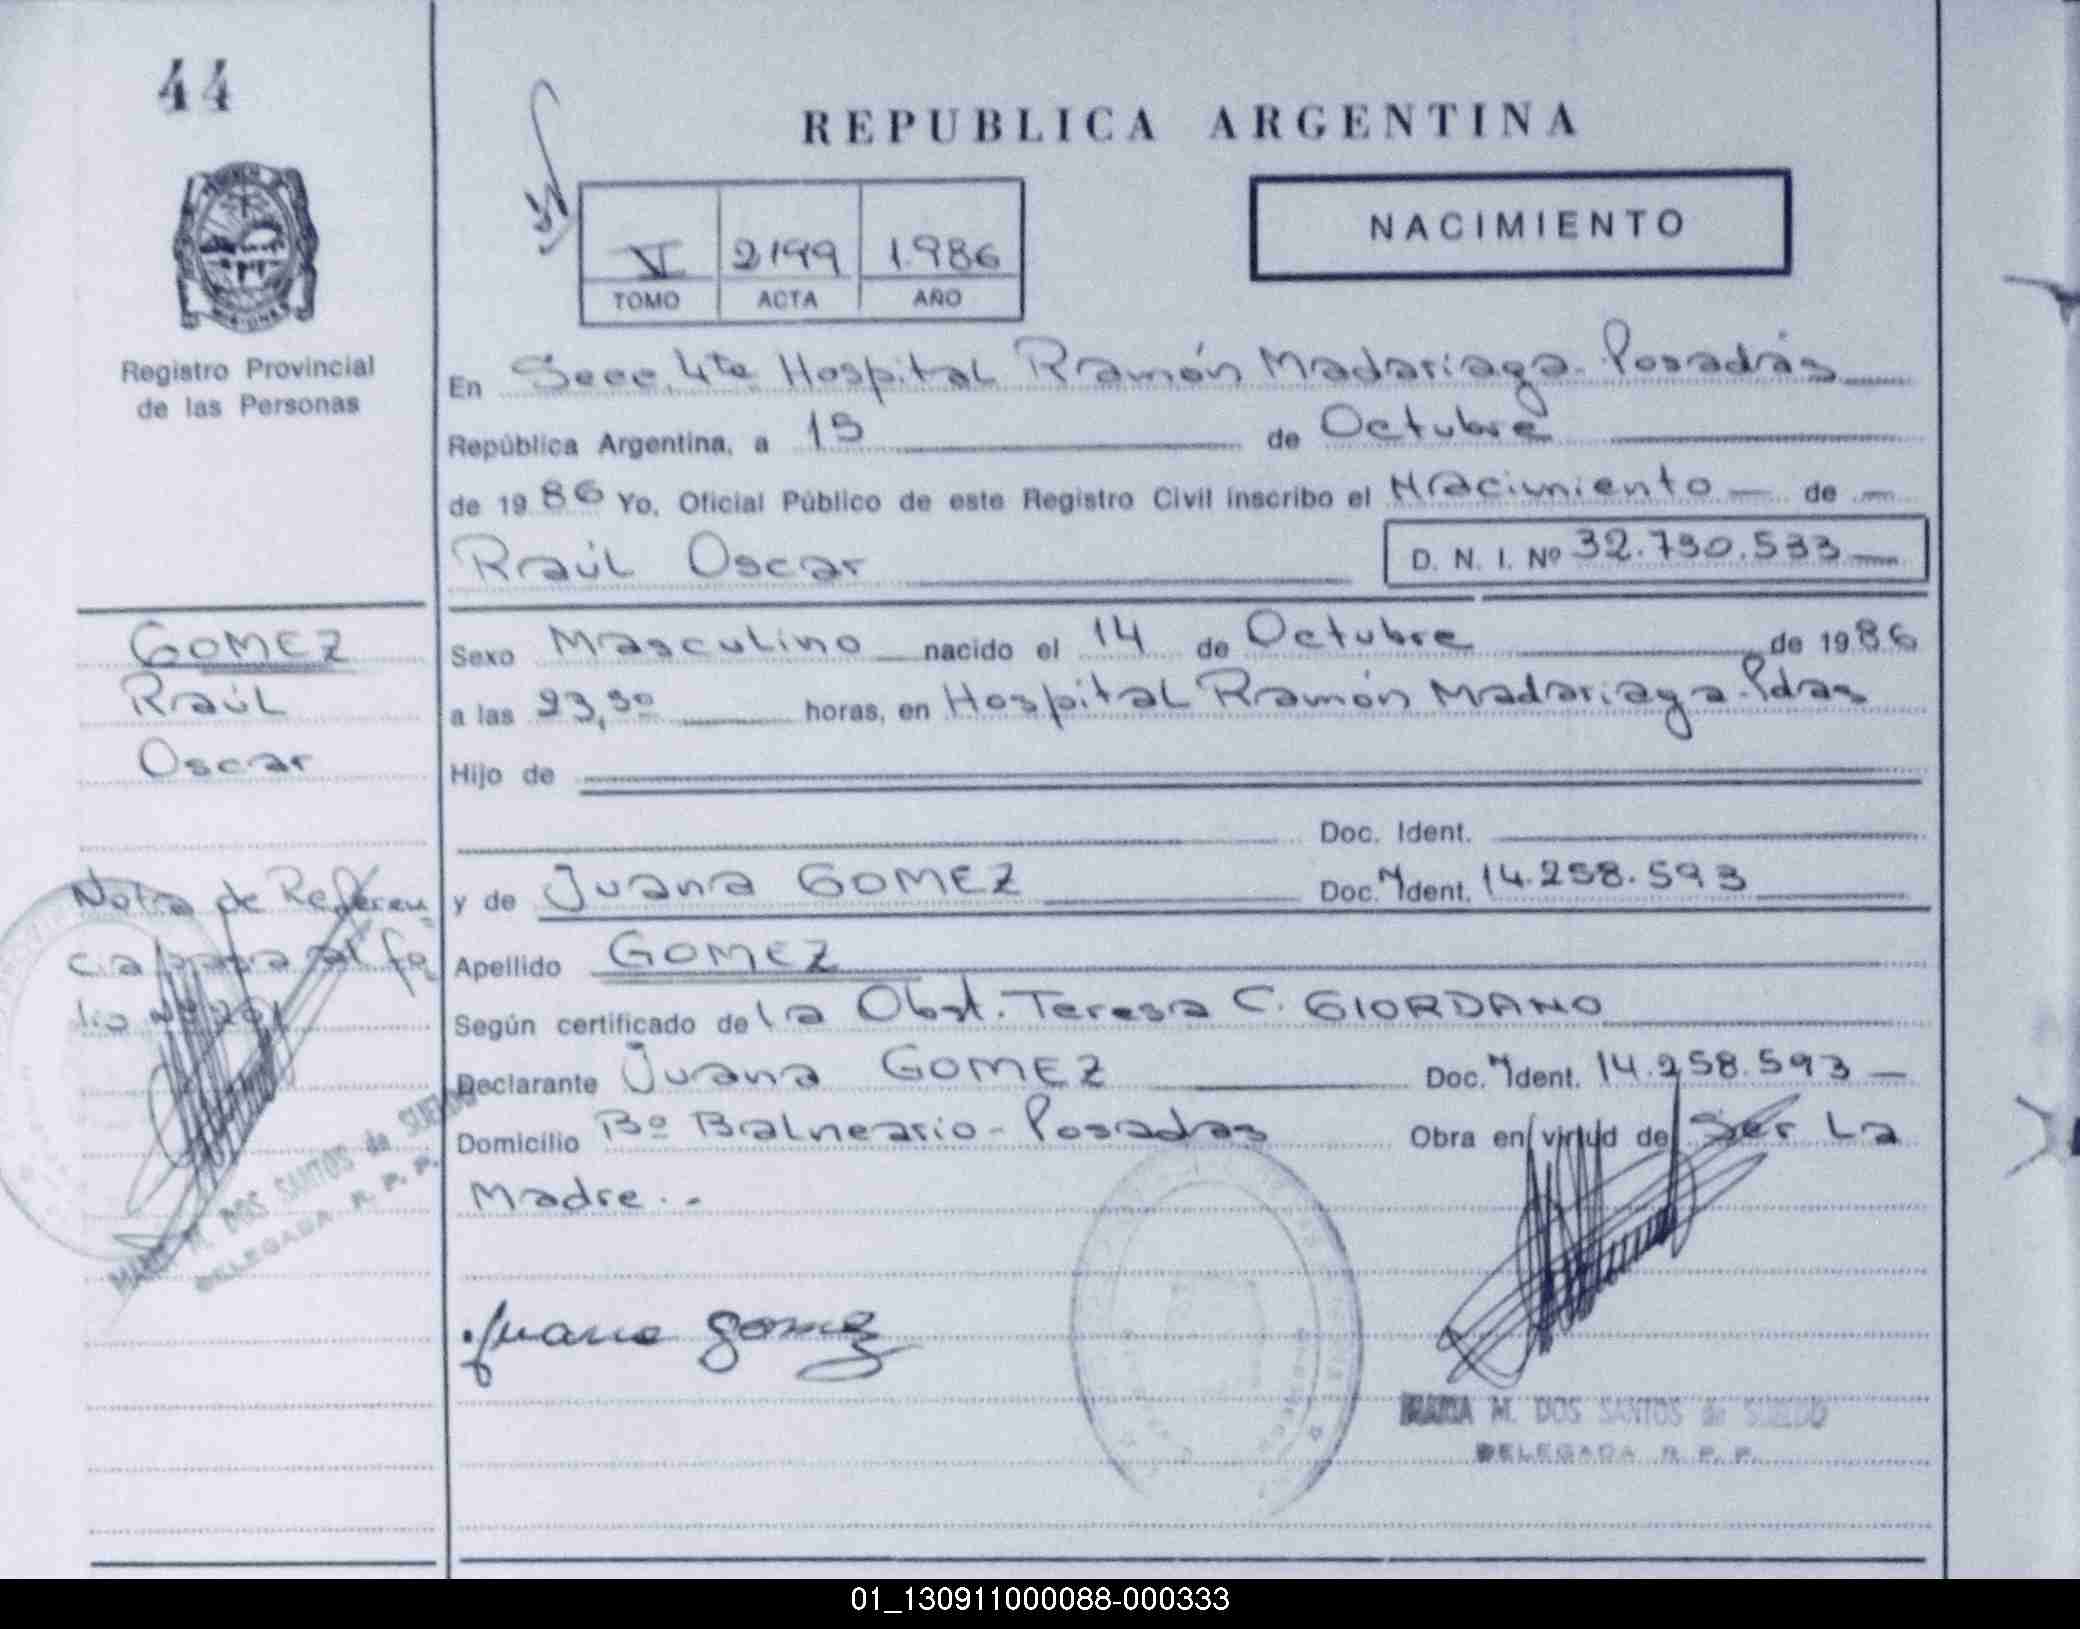 44
REPUBLICA ARGENTINA
NACIMIENTO
VI 2199 1.986
TOMO ACTA AÑO
Registro Provincial
de las Personas
En Secc. 4ta Hospital Ramón Madariaga - Posadas
República Argentina, a 15 de Octubre
de 1986 Yo, Oficial Público de este Registro Civil inscribo el Nacimiento de
Raúl Oscar D. N. I. Nº 32.730.533
GOMEZ
Raúl
Oscar
Sexo Masculino nacido el 14 de Octubre de 1986
a las 23,30 horas, en Hospital Ramón Madariaga - Pdas
Hijo de
Doc. Ident.
y de Juana GOMEZ Doc. Ident. 14.258.593
Apellido GOMEZ
Según certificado de La Obst. Teresa C. GIORDANO
Declarante Juana GOMEZ Doc. Ident. 14.258.593
Domicilio Bº Balneario - Posadas Obra en virtud de Ser La
Madre.-
Nota de Referen
cia pasa al fo
lio Nº
MARIA M. DOS SANTOS de SUELDO
DELEGADA R. P. P.
Juana Gomez
MARIA M. DOS SANTOS de SUELDO
DELEGADA R. P. P.
01_130911000088-000333